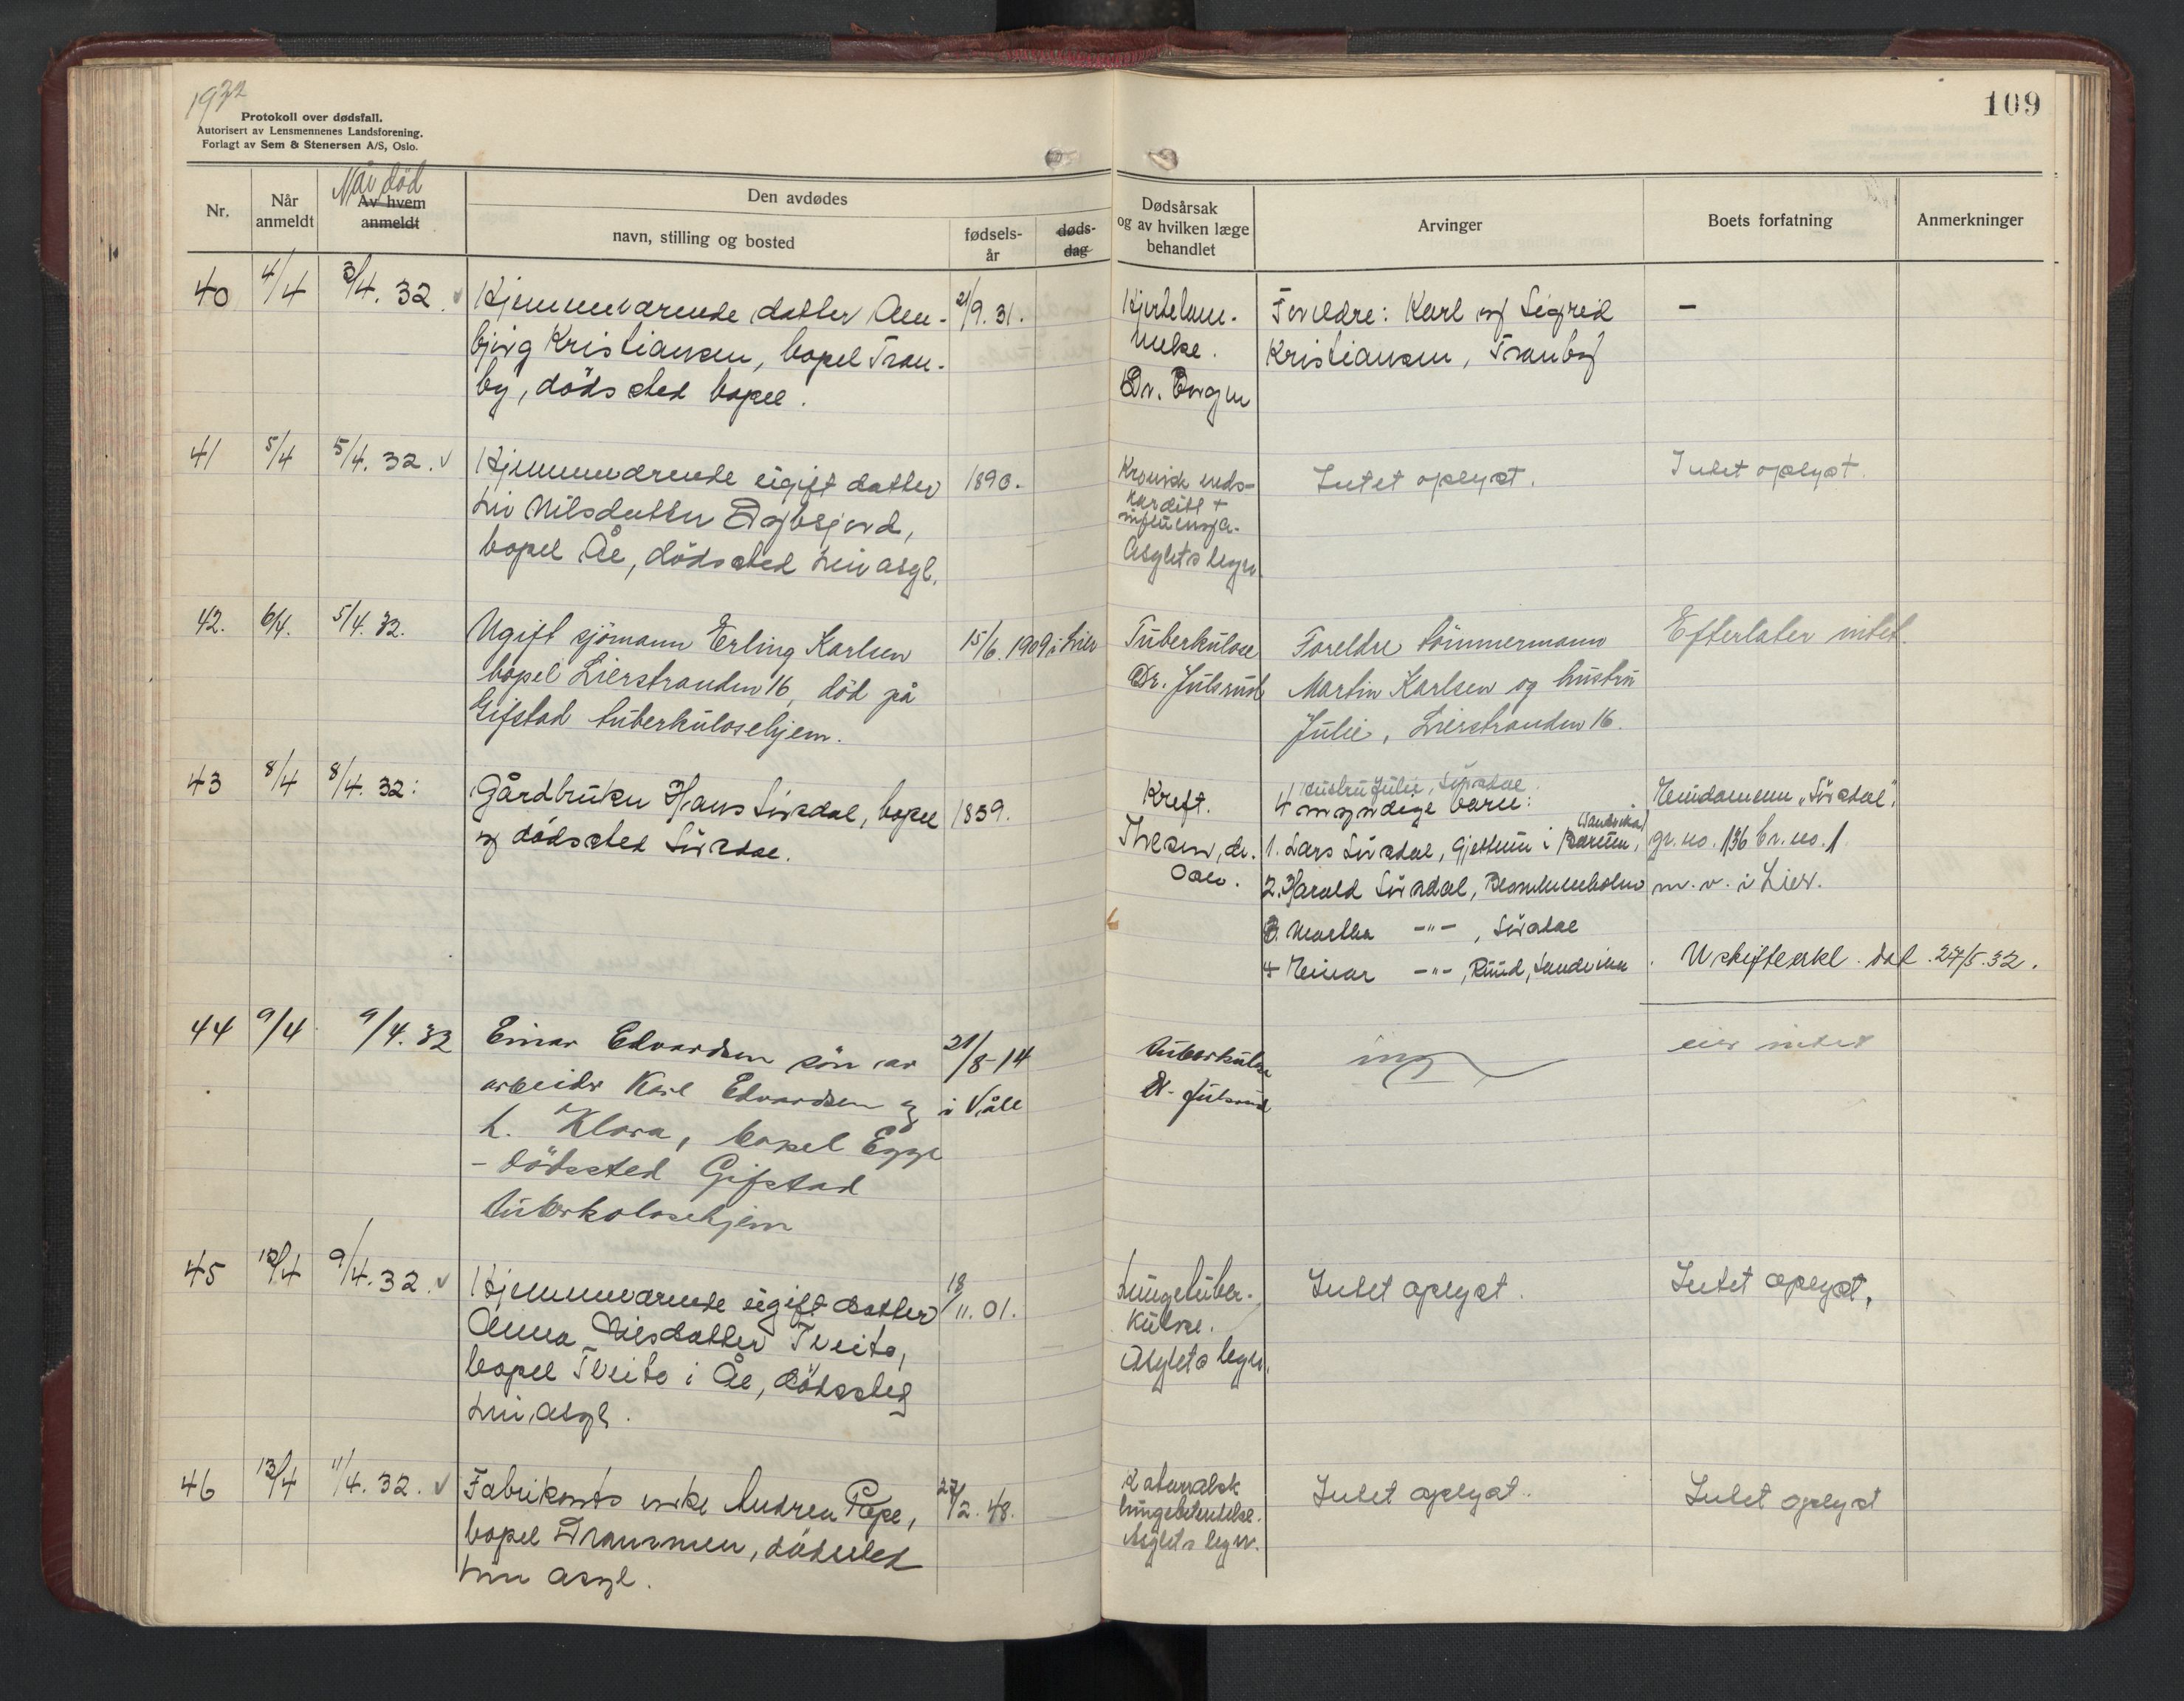 1932
Protokoll over dødsfall.
Autorisert av Lensmennenes Landsforening.
Forlagt av Sem & Stenersen A/S, Oslo.
109
Nr.
Når
anmeldt
Når død
Av hvem
anmeldt
Den avdødes
navn, stilling og bosted
fødsels-
år
døds-
dag
Dødsårsak
og av hvilken læge
behandlet
Arvinger
Boets forfatning
Anmerkninger
40 4/4 3/4. 32. Hjemmeværende datter Ann- 21/9. 31. Hjertelam- Foreldre: Karl og Sigrid —
bjørg Kristiansen, bopel Tran- melse. Kristiansen, Tranby
by, dødssted bopel. Dr.
41 5/4 5/4. 32. Hjemmeværende ugift datter 1890. Kronisk endo- Intet oplyst. Intet oplyst.
Liv Nilsdatter karditt +
bopel Ål, dødssted Lier asyl. influensa.
Asylets leger.
42. 6/4. 5/4. 32. Ugift sjømann Erling Karlsen 15/6. 1909 i Lier Tuberkulose Foreldre tømmermann Efterlater intet.
bopel Lierstranden 16, død på Dr. Julsrud Martin Karlsen og hustru
Gifstad tuberkulosehjem. Julie, Lierstranden 16.
43 8/4 8/4. 32: Gårdbruker Hans Sørsdal, bopel 1859. Kreft. Hustru Julie, Sørsdal
og dødssted Sørsdal. 4 myndige barn: Eiendommen "Sørsdal",
Thesen, dr. 1. Lars Sørsdal, Gjettum i Bærum, (Sandvika) gr. no. 136 br. no. 1
Oslo. 2. Harald Sørsdal, Blommenholm m. v. i Lier.
3. Martha —"— , Sørsdal
4 Einar —"—, Ruud, Sandvika . Uskifteerkl. dat. 27/5. 32.
44 9/4 9/4. 32 Einar Edvardsen søn av 21/8-14 tuberkulose ing eier intet
arbeider Karl Edvardsen og i Våle Dr. Julsrud
h. Klara, bopel Egge
- dødssted Gifstad
tuberkolosehjem
45 12/4 9/4. 32. Hjemmeværende ugift datter 18/11. 01. Lungetuber- Intet oplyst. Intet oplyst.
Anna Nilsdatter Tveito, kulose.
bopel Tveito i Ål, dødssted Asylets leger.
Lier asyl.
46 13/4 11/4. 32. Fabrikants enke Andrea Pape, 27/2. 48. Katarralsk Intet oplyst. Intet oplyst
bopel Drammen, dødssted lungebetendelse.
Lier asyl. Asylets leger.